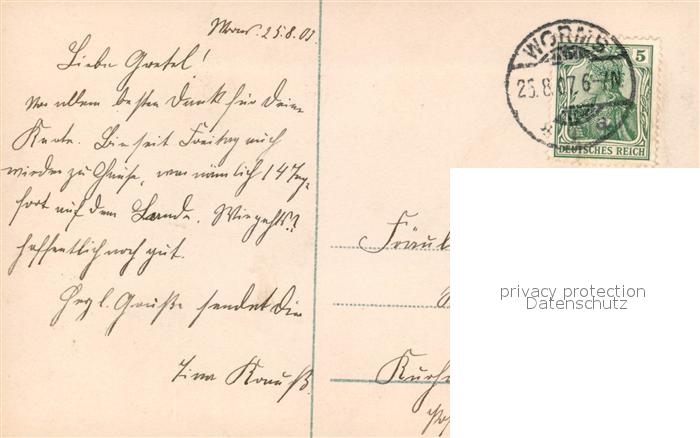 Worms. 25.8.07.
Liebe Gretel!
Vor allem besten Dank für Deine
Karte. Bin seit Freitag auch
wieder zu Hause, war nämlich 14 Tage
fort auf dem Lande. Wie gehts?
hoffentlich noch gut.
Herzl. Grüße sendet Dir
Tina
WORMS
25.8.07. 6-7N
a
5
DEUTSCHES REICH
Fräul
privacy protection
Datenschutz